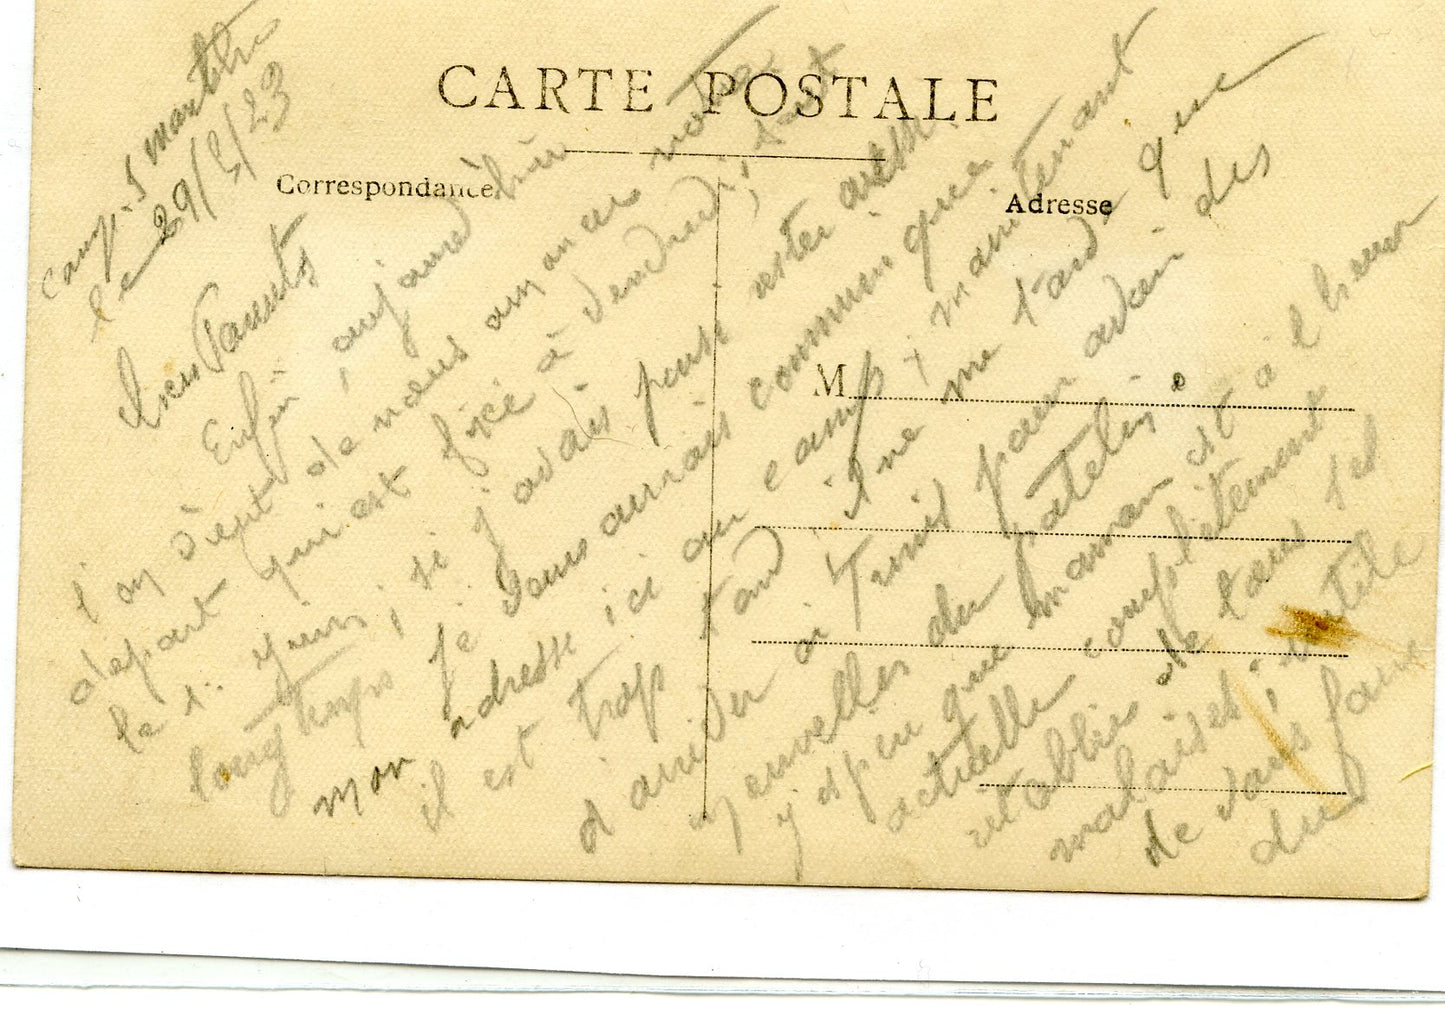 CARTE POSTALE
Correspondance
Adresse
M
Camp. S Marthe
le 29/5/23
Chers Parents
Enfin, aujourd'hui
l'on vient de nous annoncer notre
départ qui est fixé à vendredi;
le 1. juin; si j'avais pensé rester
longtemps je vous aurais communiqué
mon adresse ici au camp; maintenant
il est trop tard; il ne me tarde que
d'arriver à Tunis pour avoir des
nouvelles du patelin.
j'espère que maman est à l'heure
actuelle complètement
rétablie de tous ses
malaises; inutile
de vous faire
du